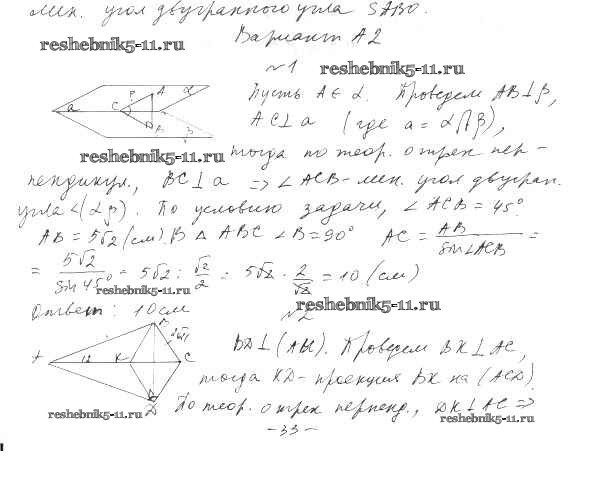 лин. угол двугранного угла SABO.
reshebnik5-11.ru
Вариант А2
№1
reshebnik5-11.ru
a P A α C B β
Пусть A ∈ α. Проведем AB⊥β,
AC⊥a (где a = α∩β),
reshebnik5-11.ru
тогда по теор. о трех пер-
пендикул., BC⊥a => ∠ACB-лин. угол двугран.
угла ∠(αβ). По условию задачи, ∠ACB = 45°
AB = 5√2 (см). В △ ABC ∠B=90° AC = AB / sin∠ACB =
= 5√2 / sin 45° = 5√2 : √2/2 = 5√2 · 2/√2 = 10 (см)
reshebnik5-11.ru
Ответ: 10см
reshebnik5-11.ru
№2
A 12 K C D
BD⊥(ABC). Проведем BK⊥AC,
тогда KD- проекция BK на (ACD).
reshebnik5-11.ru
По теор. о трех перпенд., DK⊥AC =>
reshebnik5-11.ru
-33-